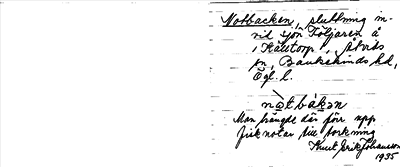 Notbacken, sluttning in-
vid sjön Följaren å
i Källtorp, Åtvids
sn, Bankekinds hd,
Ögl. l.
nòtbákən
Man hängde där förr upp
fisknotar till torkning
Knut Erik Johansson
1935